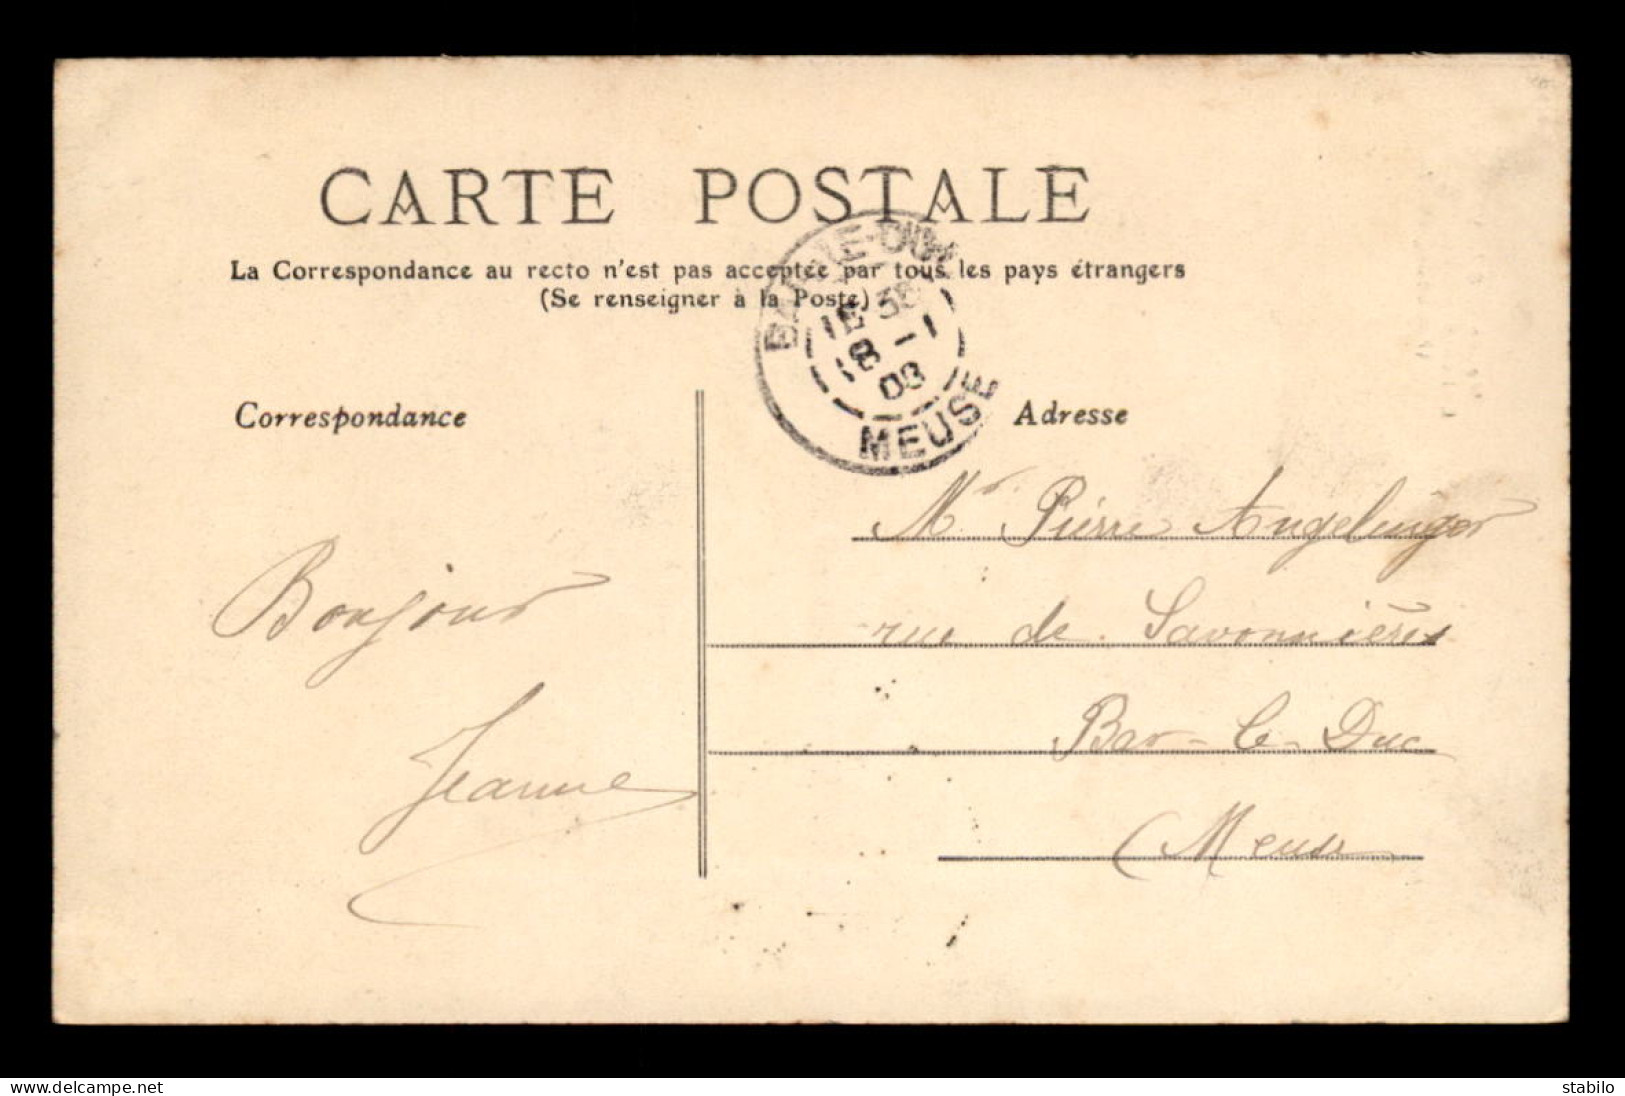 CARTE POSTALE
La Correspondance au recto n'est pas acceptée par tous les pays étrangers
(Se renseigner à la Poste)
BAR-LE-DUC
8 -1
08
MEUSE
Correspondance
Adresse
Bonjour
Jeanne
Mr Pierre
rue de Savonnières
Bar-le-Duc
(Meuse
www.delcampe.net
stabilo